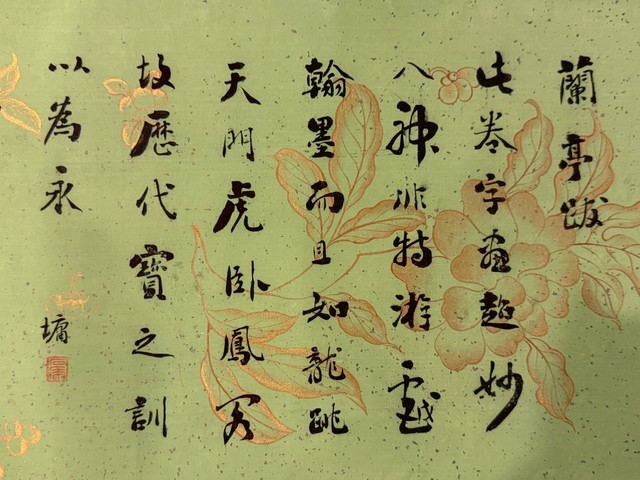 蘭亭跋
此卷字畫超妙
入神非特游戲
翰墨而且如龍跳
天門虎卧鳳閣
故歷代寶之訓
以為永
墉